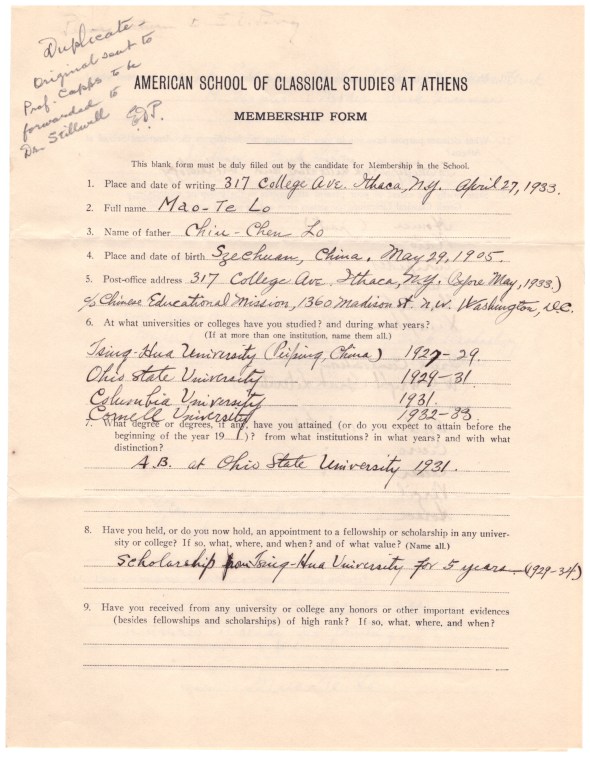 Duplicate.
Original sent to
Prof. Capps to be
forwarded to
Dr. Stillwell
EDP.
AMERICAN SCHOOL OF CLASSICAL STUDIES AT ATHENS
MEMBERSHIP FORM
This blank form must be duly filled out by the candidate for Membership in the School.
1. Place and date of writing 317 College Ave. Ithaca, N.Y. April 27, 1933.
2. Full name Mao-Te Lo
3. Name of father Chiu-Chen Lo
4. Place and date of birth Szechuan, China. May 29, 1905.
5. Post-office address 317 College Ave. Ithaca, N.Y. (before May, 1933.)
c/o Chinese Educational Mission, 1360 Madison St. N.W. Washington, D.C.
6. At what universities or colleges have you studied? and during what years?
(If at more than one institution, name them all.)
Tsing-Hua University (Peiping, China) 1927-29.
Ohio State University 1929-31
Columbia University 1931.
Cornell University 1932-33
7. What degree or degrees, if any, have you attained (or do you expect to attain before the
beginning of the year 19 )? from what institutions? in what years? and with what
distinction?
A.B. at Ohio State University 1931.
8. Have you held, or do you now hold, an appointment to a fellowship or scholarship in any univer-
sity or college? If so, what, where, and when? and of what value? (Name all.)
Scholarship from Tsing-Hua University for 5 years. (1929-34)
9. Have you received from any university or college any honors or other important evidences
(besides fellowships and scholarships) of high rank? If so, what, where, and when?